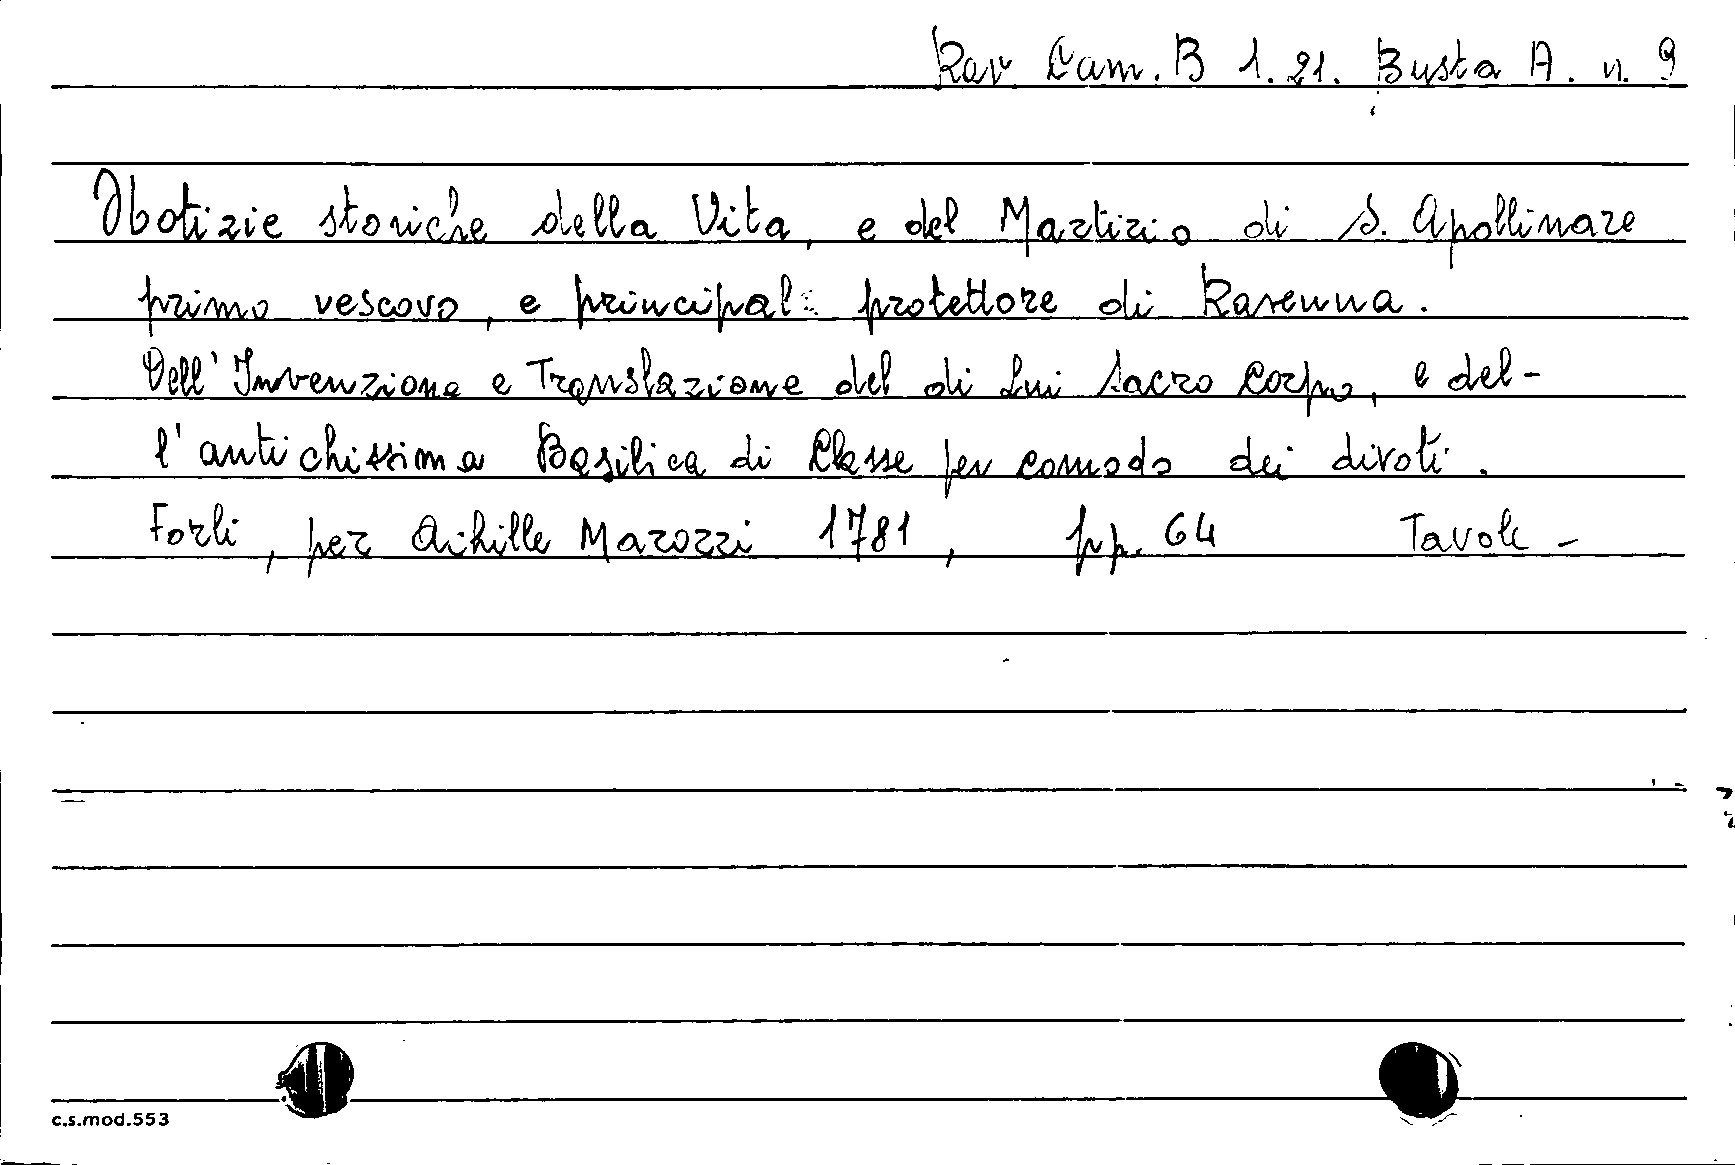 Rav Cam. B 1. 21. Busta A. n. 9
Notizie storiche della Vita, e del Martirio di S. Apollinare
primo vescovo, e principal protettore di Ravenna.
Dell' Invenzione e Translazione del di Lui Sacro Corpo, e del-
l'antichissima Basilica di Classe per comodo dei divoti.
Forlì, per Achille Marozzi 1781, pp. 64 Tavole -
c.s.mod.553